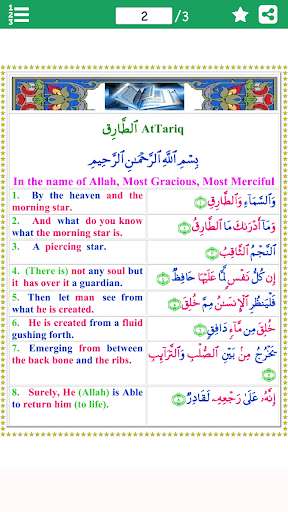 1
2
3
2
/3
ٱلطَّارِق AtTariq
بِسْمِ ٱللَّهِ ٱلرَّحْمَـٰنِ ٱلرَّحِيمِ
In the name of Allah, Most Gracious, Most Merciful
1. By the heaven and the
morning star.
وَٱلسَّمَآءِ وَٱلطَّارِقِ ﴿١﴾
2. And what do you know
what the morning star is.
وَمَآ أَدْرَىٰكَ مَا ٱلطَّارِقُ ﴿٢﴾
3. A piercing star.
ٱلنَّجْمُ ٱلثَّاقِبُ ﴿٣﴾
4. (There is) not any soul but it
has over it a guardian.
إِن كُلُّ نَفْسٍ لَّمَّا عَلَيْهَا حَافِظٌ ﴿٤﴾
5. Then let man see from
what he is created.
فَلْيَنظُرِ ٱلْإِنسَـٰنُ مِمَّ خُلِقَ ﴿٥﴾
6. He is created from a fluid
gushing forth.
خُلِقَ مِن مَّآءٍ دَافِقٍ ﴿٦﴾
7. Emerging from between
the back bone and the ribs.
يَخْرُجُ مِنۢ بَيْنِ ٱلصُّلْبِ وَٱلتَّرَآئِبِ ﴿٧﴾
8. Surely, He (Allah) is Able
to return him (to life).
إِنَّهُۥ عَلَىٰ رَجْعِهِۦ لَقَادِرٌ ﴿٨﴾